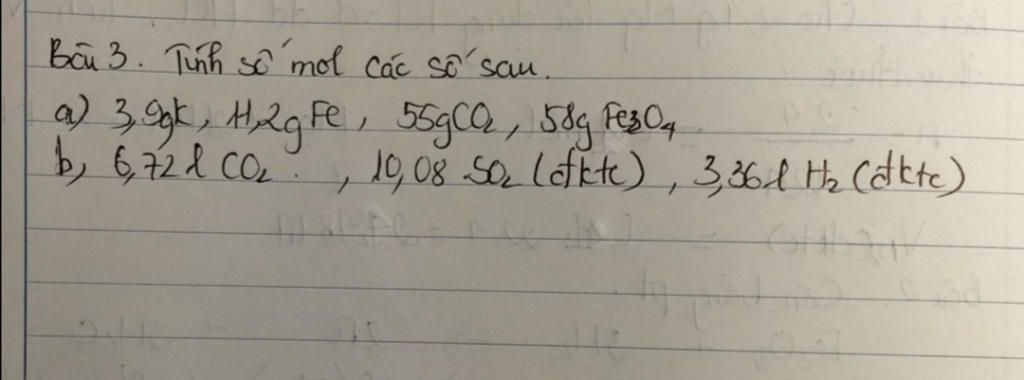 Bài 3. Tính số mol các số sau.
a) 3,9gK, 11,2gFe, 55gCO2, 58g Fe3O4
b, 6,72l CO2. , 10,08 SO2 (đktc), 3,36l H2 (đktc)